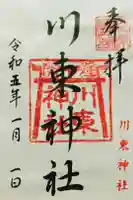 奉拝
川東神社
川東神社
令和五年一月一日